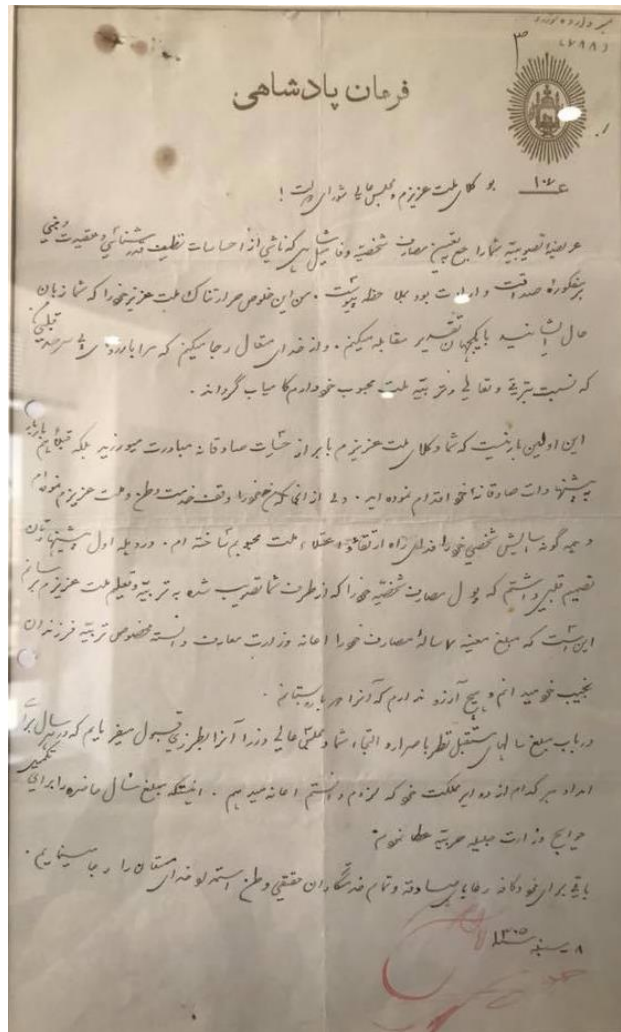 ۳
فرمان پادشاهی
بوکلای ملت عزیزم و مجلس عالی شورای دولت !
عریضهٔ تصویبیه شما راجع بتعیین مصارف شخصیه و فامیل شاهی که ناشی از احساسات نظیف قدرشناسی و عقیدت و
صداقت و ارادت بود بملاحظه پیوست. من این خلوص حرارتناک ملت عزیز خود را که شما زبان
حال ایشانید با یکجهان تقدیر مقابله میکنم. و از خدای متعال رجا میکنم که مرا بارزوی بی سرحد قلبی
که نسبت بترقی و تعالی و تربیه ملت محبوب خود دارم کامیاب گرداند.
این اولین بار نیست که شما وکلای ملت عزیزم بابراز حسیات صادقانه مبادرت میورزید بلکه قبلاً هم باربار
پیشنهادات صادقانه خود اقدام نموده اید. ولی از آنجا که من خود را وقف خدمت وطن و ملت عزیزم نموده ام
و همه گونه آسایش شخصی خود را فدای راه ارتقا و اعتلاء ملت محبوبم ساخته ام. در وهله اول پیشنهادتان
تصمیم قلبی داشتم که پول مصارف شخصیه خود را که از طرف شما تصویب شده به تربیه و تعلیم ملت عزیزم برسانم
این است که مبلغ معینه ۷ ساله مصارف خود را اعانه وزارت معارف دانسته مخصوص تربیه فرزندان
نجیب خود میدانم و هیچ آرزو ندارم که آنرا
در باب مبلغ سالهای مستقبل نظر باصرار و التجاء شما و مجلس عالی وزرا آنرا بطرزی قبول میفرمایم که در هر سال برای تکمیل
امداد هر کدام از دوایر مملکت خود که لزوم دانستم اعانه میدهم. اینست که مبلغ سال حاضره را برای
حوایج وزارت جلیله حربیه عطا نمودم
باقی برای خود و کافه رعایای صادقه و تمام خدمتگاران حقیقی وطن استمداد خدای مستعان را رجا مینمایم.
۸ سنبله ۱۳۰۵